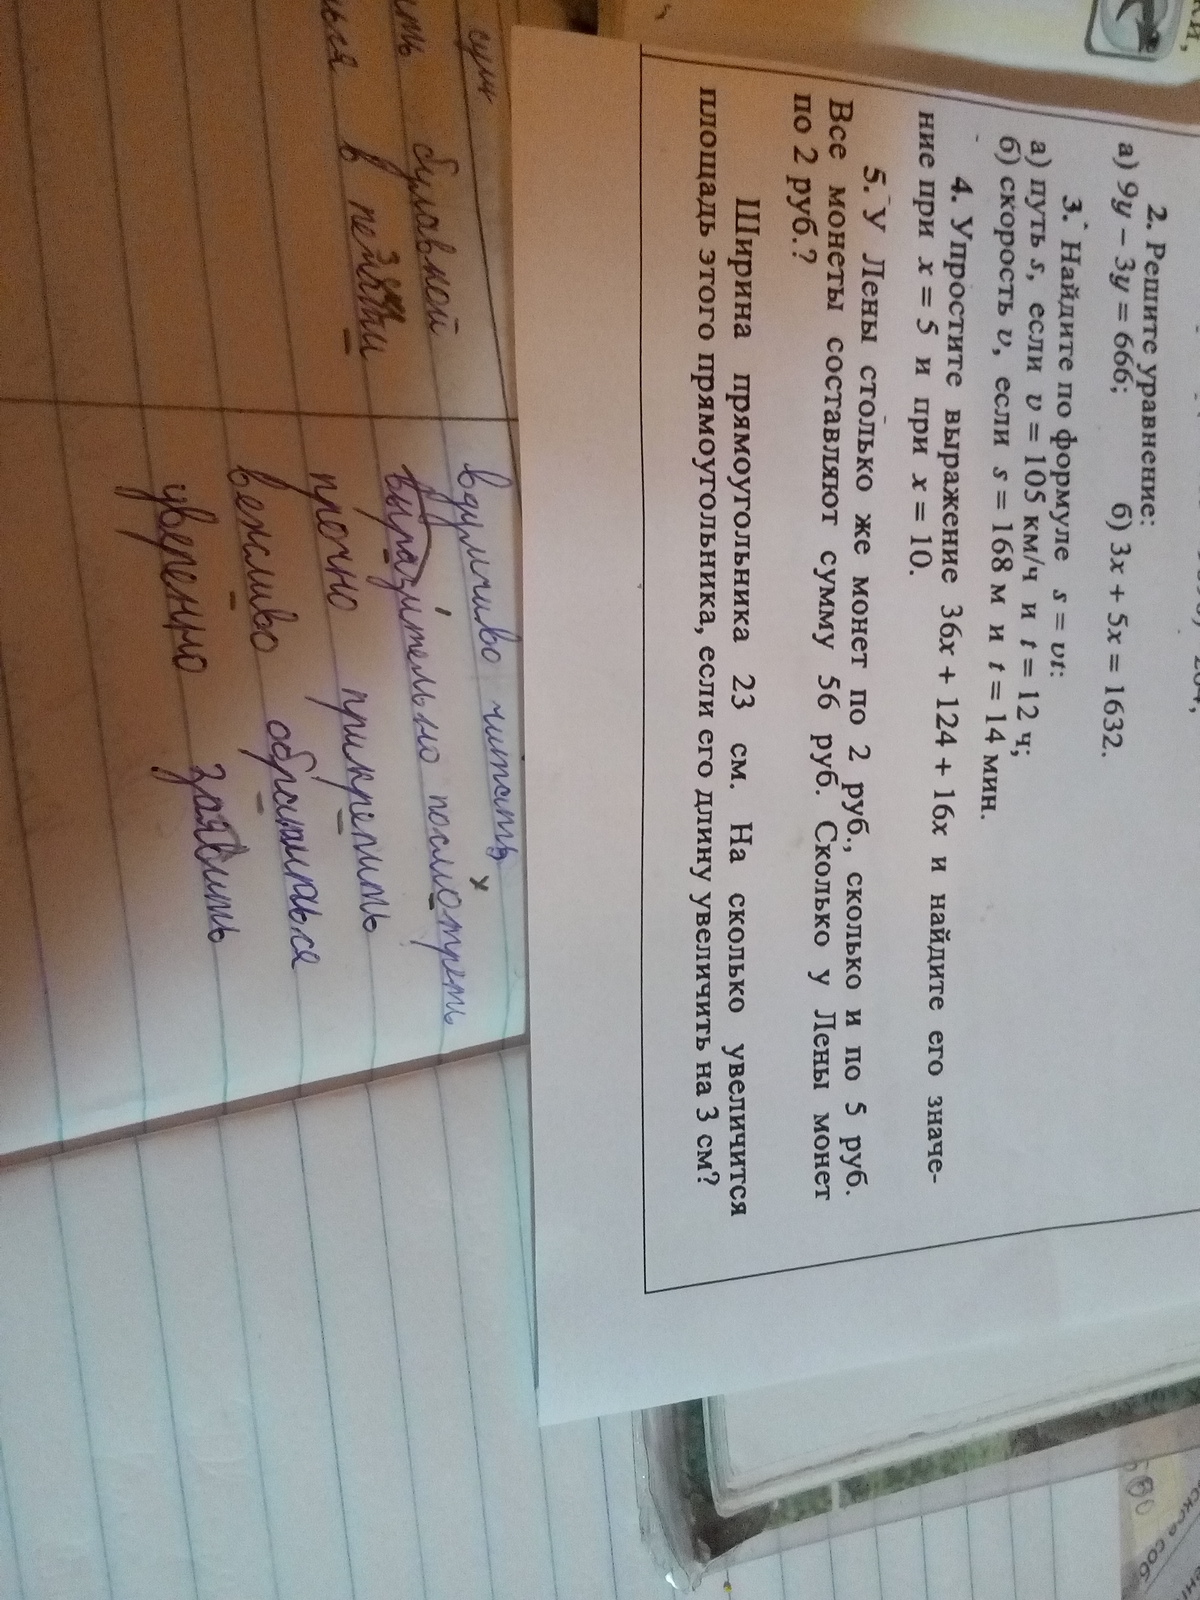 2. Решите уравнение:
а) 9y – 3y = 666; б) 3x + 5x = 1632.
3. Найдите по формуле s = vt:
а) путь s, если v = 105 км/ч и t = 12 ч;
б) скорость v, если s = 168 м и t = 14 мин.
4. Упростите выражение 36x + 124 + 16x и найдите его значе-
ние при x = 5 и при x = 10.
5. У Лены столько же монет по 2 руб., сколько и по 5 руб.
Все монеты составляют сумму 56 руб. Сколько у Лены монет
по 2 руб.?
Ширина прямоугольника 23 см. На сколько увеличится
площадь этого прямоугольника, если его длину увеличить на 3 см?
вдумчиво читать
булавкой выразительно посмотреть
в прочно прикрепить
вежливо обращаться
уверенно заявить